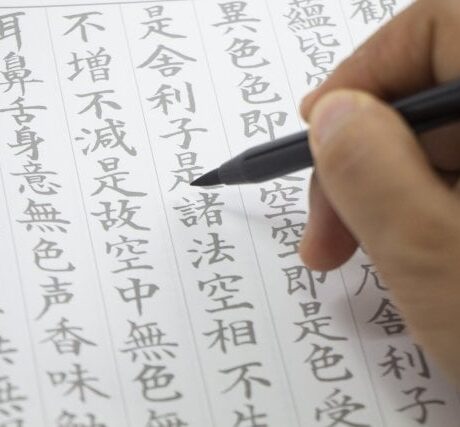 観
蘊皆空厄舎利子
異色色即空空即是色受
是舎利子是諸法空相不生
不増不減是故空中無色無
耳鼻舌身意無色声香味触